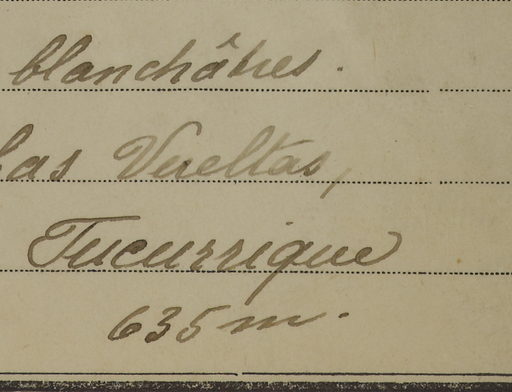 blanchâtres.
Las Vueltas,
Tucurrique
635 m.